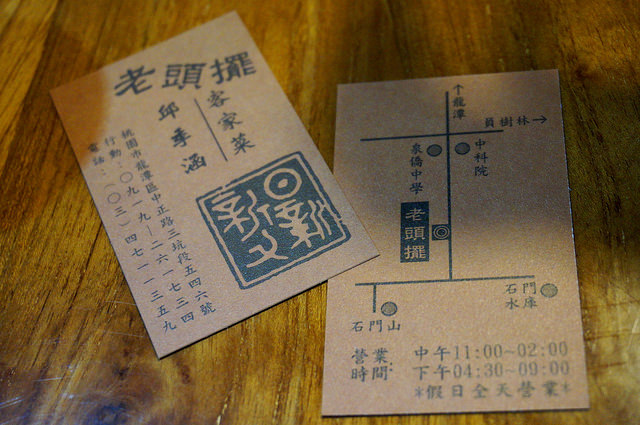 老頭擺
客家菜
邱季涵
桃園市龍潭區中正路三坑段五四六號
行動：○九一九－二六一七三四
電話：(○三)四七一一三五九
↑龍潭
員樹林→
泉僑中學
中科院
老頭擺
石門水庫
石門山
營業時間：
中午11:00~02:00
下午04:30~09:00
*假日全天營業*